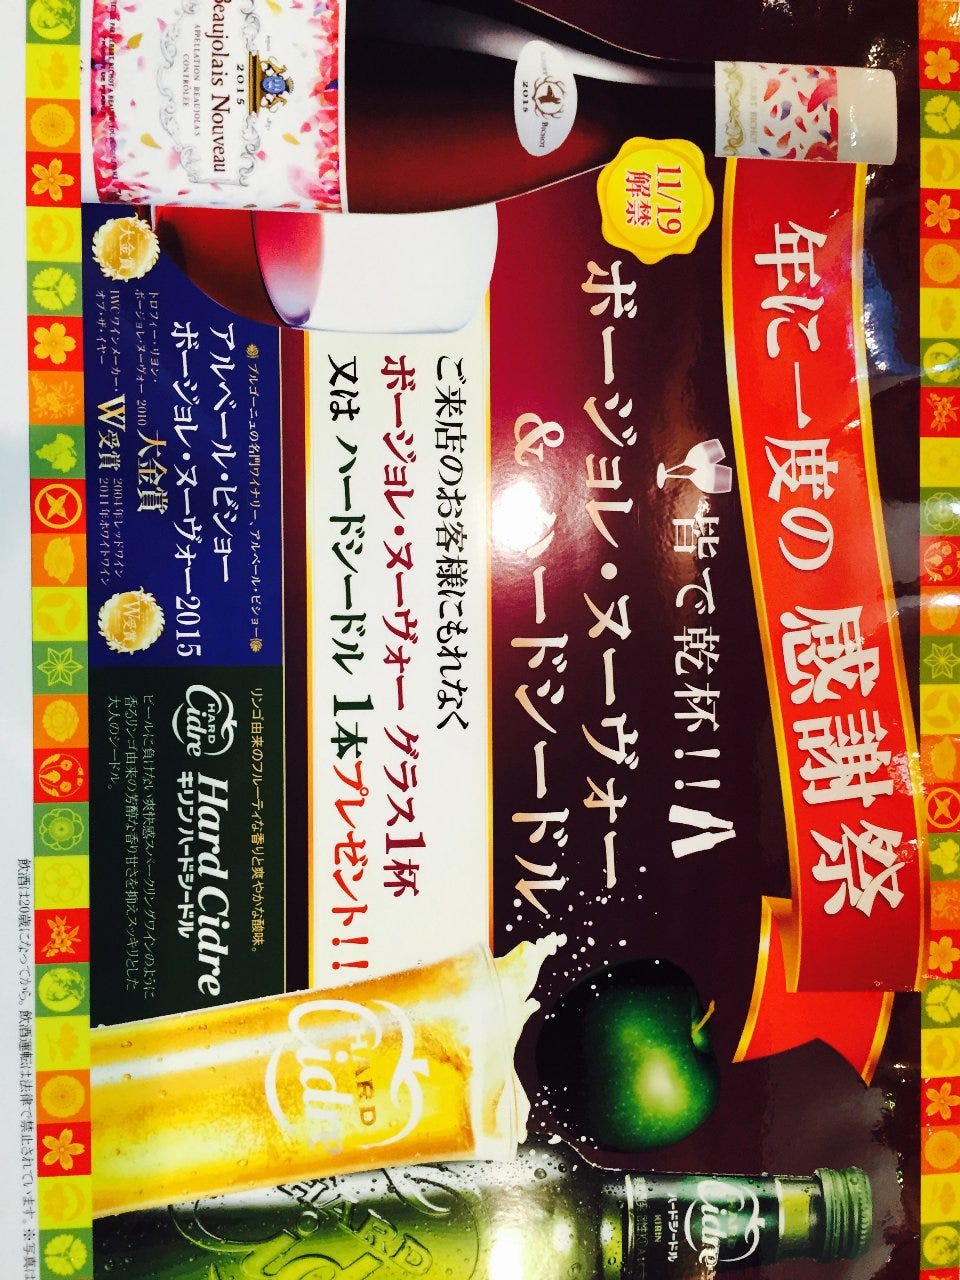 年に一度の 感謝祭
皆で乾杯!!
11/19
解禁
ボージョレ・ヌーヴォー
& ハードシードル
ご来店のお客様にもれなく
ボージョレ・ヌーヴォー グラス1杯
又は ハードシードル 1本プレゼント!!
BICHOT
2015
2015
Beaujolais Nouveau
APPELLATION BEAUJOLAIS
CONTRÔLÉE
ブルゴーニュの名門ワイナリー、アルベール・ビショー
アルベール・ビショー
ボージョレ・ヌーヴォー2015
大金賞
トロフィー・リヨン・
ボージョレヌーヴォー 2010 大金賞
IWCワインメーカー・
オブ・ザ・イヤー W受賞
2004年レッドワイン
2011年ホワイトワイン
W受賞
リンゴ由来のフルーティな香りと爽やかな酸味。
HARD
Cidre
Hard Cidre
キリン ハードシードル
ビールに負けない爽快感スパークリングワインのように
香るリンゴ由来の芳醇な香り甘さを抑えスッキリとした
大人のシードル。
HARD
Cidre
HARD
Cidre
ハードシードル
KIRIN
HARD
飲酒は20歳になってから。飲酒運転は法律で禁止されています。※写真は